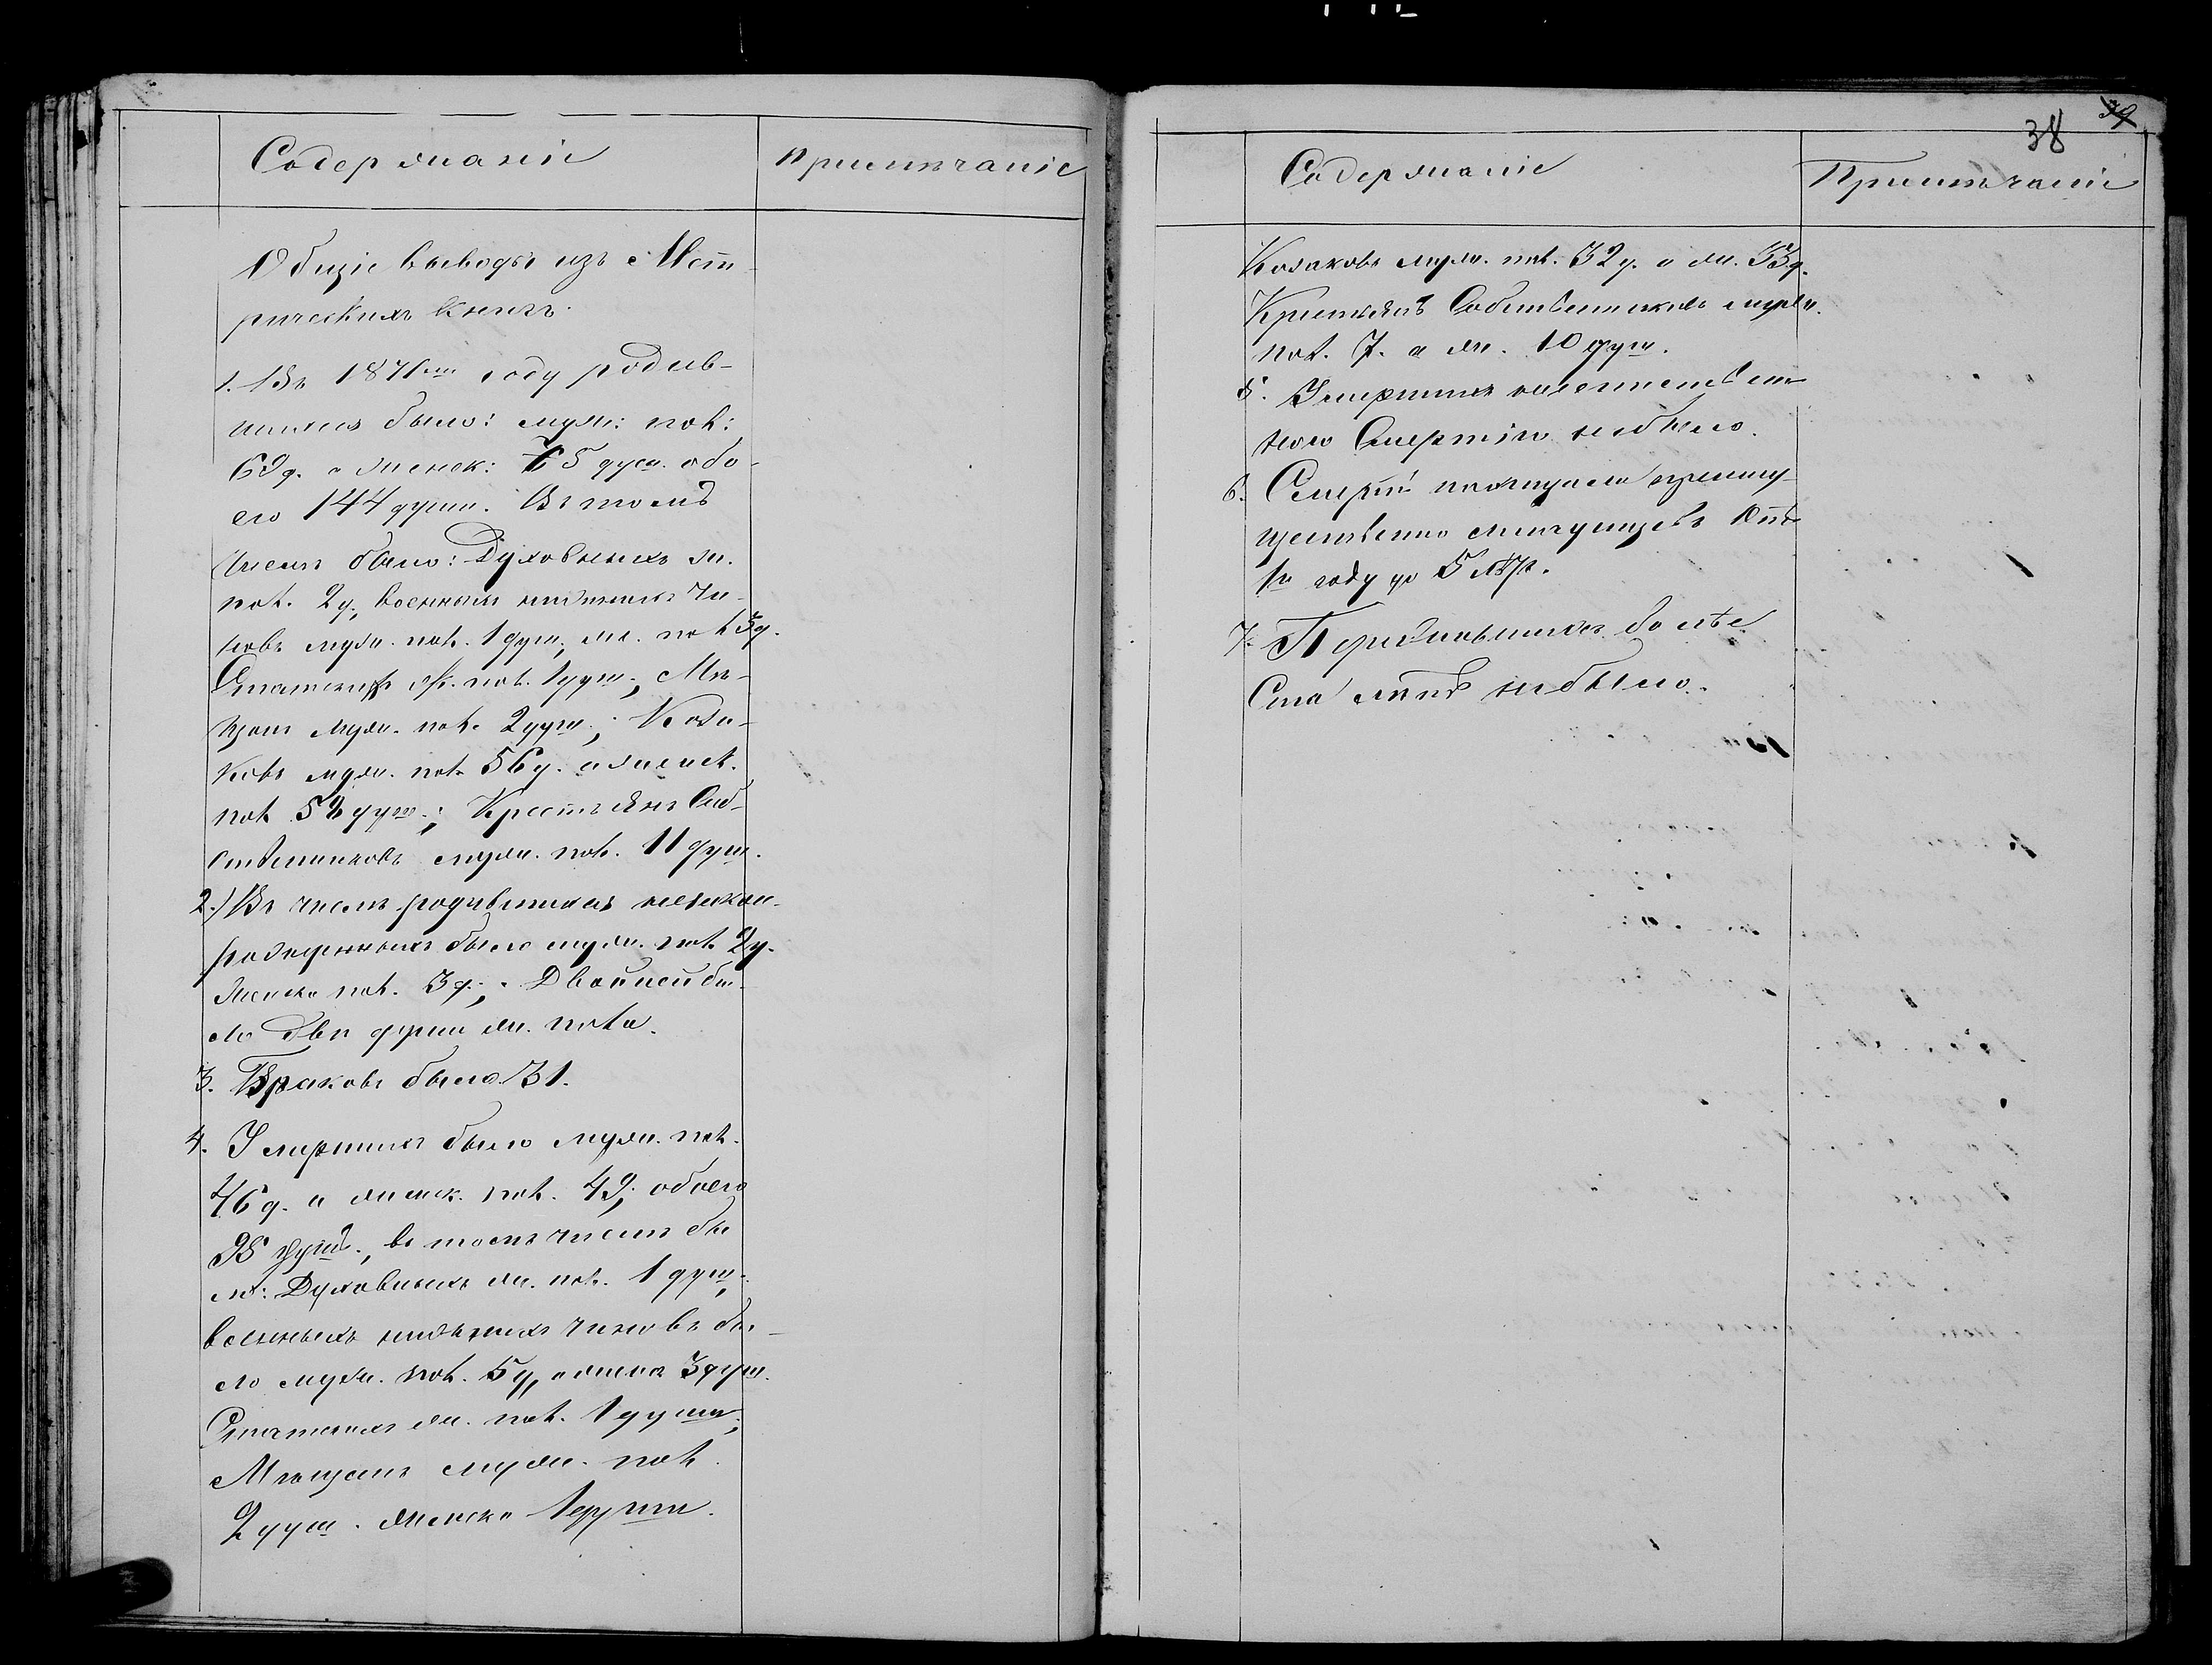 Содержаніе
Примѣчаніе
Общіе выводы изъ Мет-
рическихъ книгъ.
1. Въ 1871мъ году родив-
шихся было: муж: пол:
69 д. а женск: 75 душ. обо-
его 144 души. Въ томъ
числѣ было: Духовныхъ ж.
пол. 2 д., военныхъ нижнихъ чи-
новъ муж. пол. 1 душ, ж. пол 3 д.
Статскихъ ж. пол. 1 душ., Мѣ-
щан муж. пол. 2 душ.; Коза-
ковъ муж. пол. 56 д. а женск.
пол. 58 душ.; Крестьянъ Соб-
ственниковъ муж. пол. 11 душ.
2.) Въ числѣ родившихся незакон-
рожденныхъ было муж. пол. 2 д.
женска пол. 3 д.; Двойней бы-
ло двѣ души ж. пола.
3. Браковъ было 31.
4. Умершихъ было муж. пол.
46 д. а женск. пол. 49; обоего
95 душъ., въ томъ числѣ бы
ло: Духовныхъ ж. пол. 1 душ.,
военныхъ нижнихъ чиновъ бы-
ло муж. пол. 5 д, а женска 3 душ.
Статскихъ ж. пол. 1 душа;
Мѣщанъ муж. пол.
2 душ. женска 1 душа.
38
39
Содержаніе
Примѣчаніе
Козаковъ муж. пол. 32 д. а ж. 33 д.
Крестьянъ Собственниковъ муж.
пол. 7. а ж. 10 душ.
5. Умершихъ неестествен-
ною Смертію небыло.
6. Смерть похищала преиму-
щественно младенцевъ отъ
1го году до 5 лѣт.
7. Переживших болѣе
Ста лѣтъ небыло.